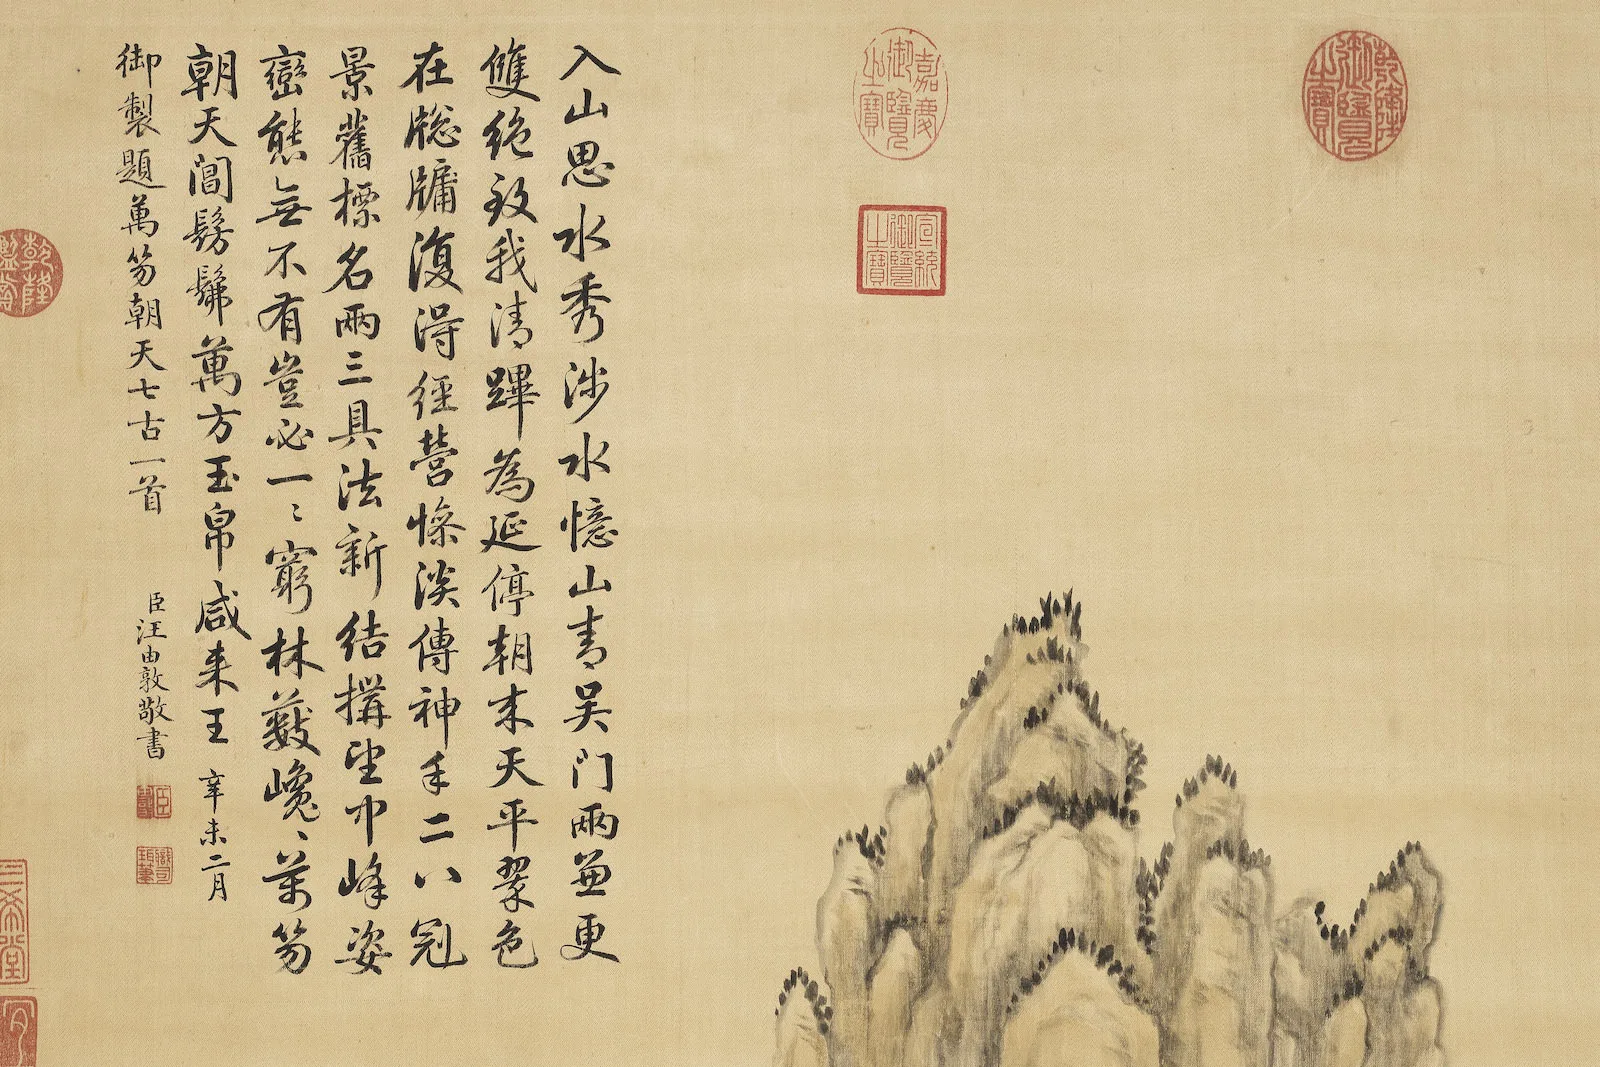 入山思水秀涉水憶山青吴门兩兼更
雙絶致我清蹕為延停朝來天平翠色
在牕牗復得經營慘淡傳神手二八冠
景舊標名兩三具法新結搆望中峰姿
巒態無不有豈必一〻窮林薮巉〻萬笏
朝天閶髣髴萬方玉帛咸来王 辛未二月
御製題萬笏朝天七古一首
臣汪由敦敬書
嘉慶御覽之寶
宣統御覽之寶
乾隆御覽之寶
乾隆鑑賞
三希堂